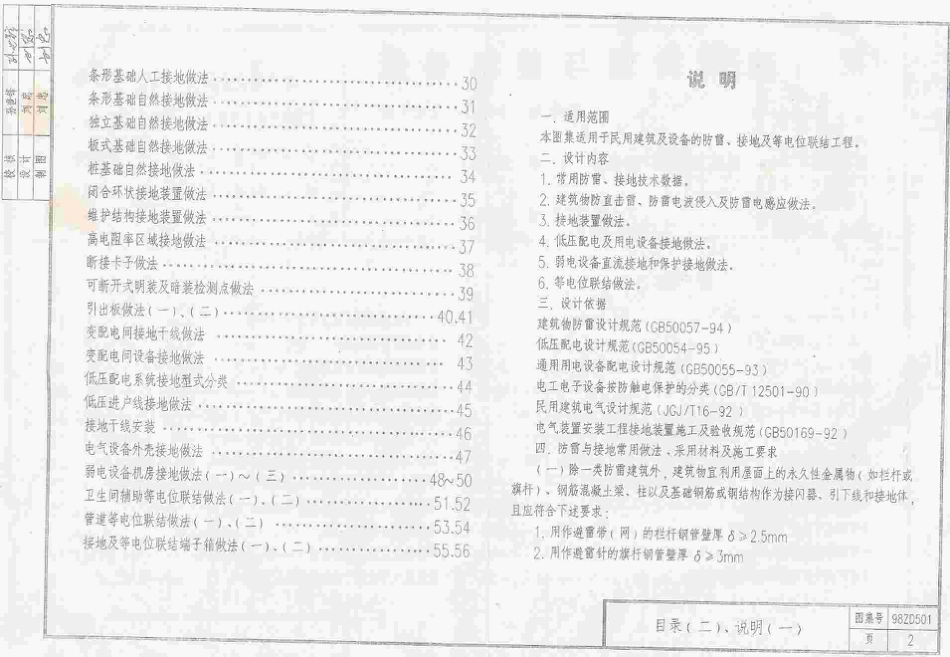 条形基础人工接地做法 30
条形基础自然接地做法 31
独立基础自然接地做法 32
板式基础自然接地做法 33
桩基础自然接地做法 34
闭合环状接地装置做法 35
维护结构接地装置做法 36
高电阻率区域接地做法 37
断接卡子做法 38
可断开式明装及暗装检测点做法 39
引出板做法(一)、(二) 40.41
变配电间接地干线做法 42
变配电间设备接地做法 43
低压配电系统接地型式分类 44
低压进户线接地做法 45
接地干线安装 46
电气设备外壳接地做法 47
弱电设备机房接地做法(一)～(三) 48~50
卫生间辅助等电位联结做法(一)、(二) 51.52
管道等电位联结做法(一)、(二) 53.54
接地及等电位联结端子箱做法(一)、(二) 55.56
说 明
一. 适用范围
本图集适用于民用建筑及设备的防雷、接地及等电位联结工程。
二. 设计内容
1. 常用防雷、接地技术数据。
2. 建筑物防直击雷、防雷电波侵入及防雷电感应做法。
3. 接地装置做法。
4. 低压配电及用电设备接地做法。
5. 弱电设备直流接地和保护接地做法。
6. 等电位联结做法。
三. 设计依据
建筑物防雷设计规范(GB50057-94)
低压配电设计规范(GB50054-95)
通用用电设备配电设计规范(GB50055-93)
电工电子设备按防触电保护的分类(GB/T 12501-90)
民用建筑电气设计规范(JGJ/T16-92)
电气装置安装工程接地装置施工及验收规范(GB50169-92)
四. 防雷与接地常用做法、采用材料及施工要求
(一)除一类防雷建筑外，建筑物宜利用屋面上的永久性金属物(如栏杆或
旗杆)、钢筋混凝土梁、柱以及基础钢筋或钢结构作为接闪器、引下线和接地体，
且应符合下述要求：
1. 用作避雷带(网)的栏杆钢管壁厚 δ≥2.5mm
2. 用作避雷针的旗杆钢管壁厚 δ≥3mm
校 核
设 计
制 图
目录(二)、说明(一)
图集号 98ZD501
页 2